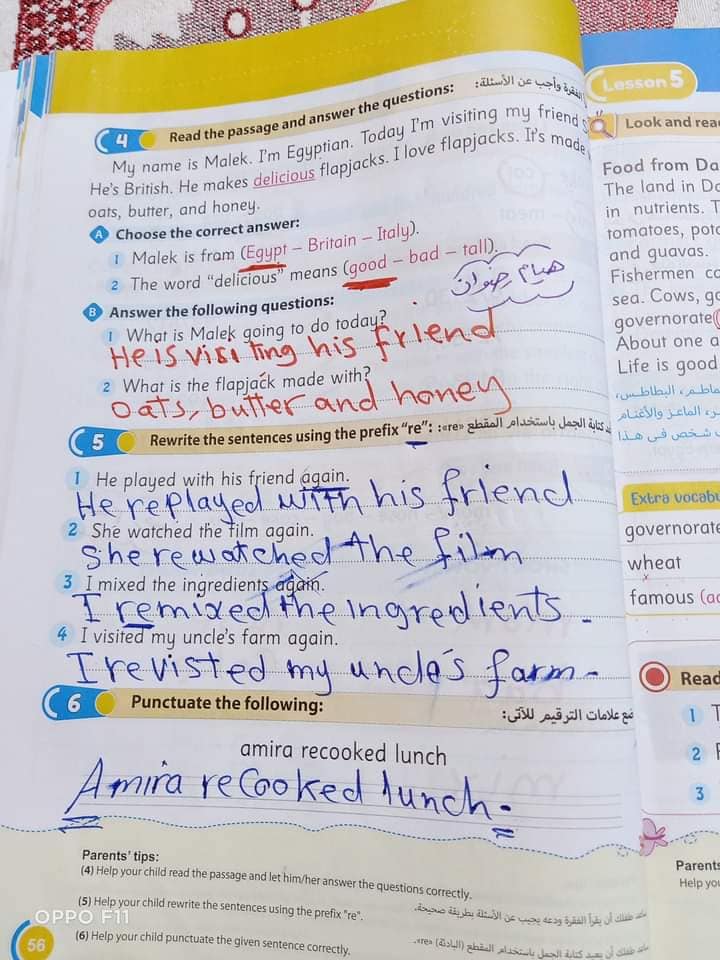 4 Read the passage and answer the questions: الفقرة وأجب عن الأسئلة:
My name is Malek. I'm Egyptian. Today I'm visiting my friend
He's British. He makes delicious flapjacks. I love flapjacks. It's made
oats, butter, and honey.
A Choose the correct answer:
1 Malek is from (Egypt – Britain – Italy).
2 The word "delicious" means (good – bad – tall).
هيام رضوان
B Answer the following questions:
1 What is Malek going to do today?
He is visiting his friend
2 What is the flapjack made with?
oats, butter and honey
5 Rewrite the sentences using the prefix "re": كتابة الجمل باستخدام المقطع «re»:
1 He played with his friend again.
He replayed with his friend
2 She watched the film again.
She rewatched the film
3 I mixed the ingredients again.
I remixed the ingredients.
4 I visited my uncle's farm again.
I revisted my uncle's farm.
6 Punctuate the following: ضع علامات الترقيم للآتى:
amira recooked lunch
Amira recooked lunch.
Parents' tips:
(4) Help your child read the passage and let him/her answer the questions correctly.
ساعد طفلك أن يقرأ الفقرة ودعه يجيب عن الأسئلة بطريقة صحيحة.
(5) Help your child rewrite the sentences using the prefix "re".
ساعد طفلك أن يعيد كتابة الجمل باستخدام المقطع (البادئة) «re».
(6) Help your child punctuate the given sentence correctly.
56
OPPO F11
Lesson 5
Look and read
Food from Da
The land in Da
in nutrients. T
tomatoes, pota
and guavas.
Fishermen ca
sea. Cows, go
governorate
About one a
Life is good
ماطم، البطاطس،
الماعز والأغنام
شخص فى هذا
Extra vocabu
governorate
wheat
famous
Read
1 T
2
3
Parents
Help you